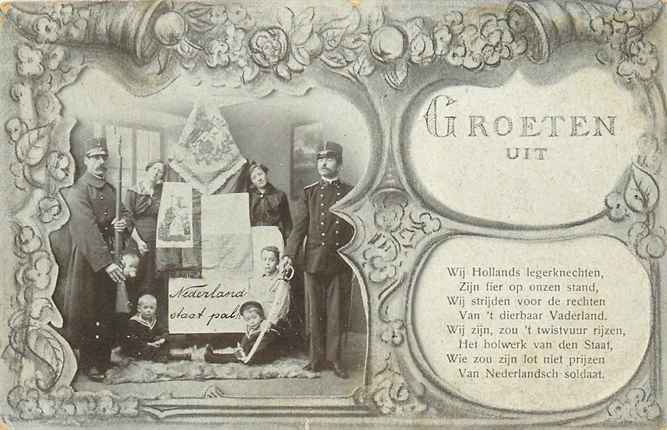 GROETEN
UIT
Nederland
staat pal.
Wij Hollands legerknechten,
Zijn fier op onzen stand,
Wij strijden voor de rechten
Van 't dierbaar Vaderland.
Wij zijn, zou 't twistvuur rijzen,
Het bolwerk van den Staat,
Wie zou zijn lot niet prijzen
Van Nederlandsch soldaat.